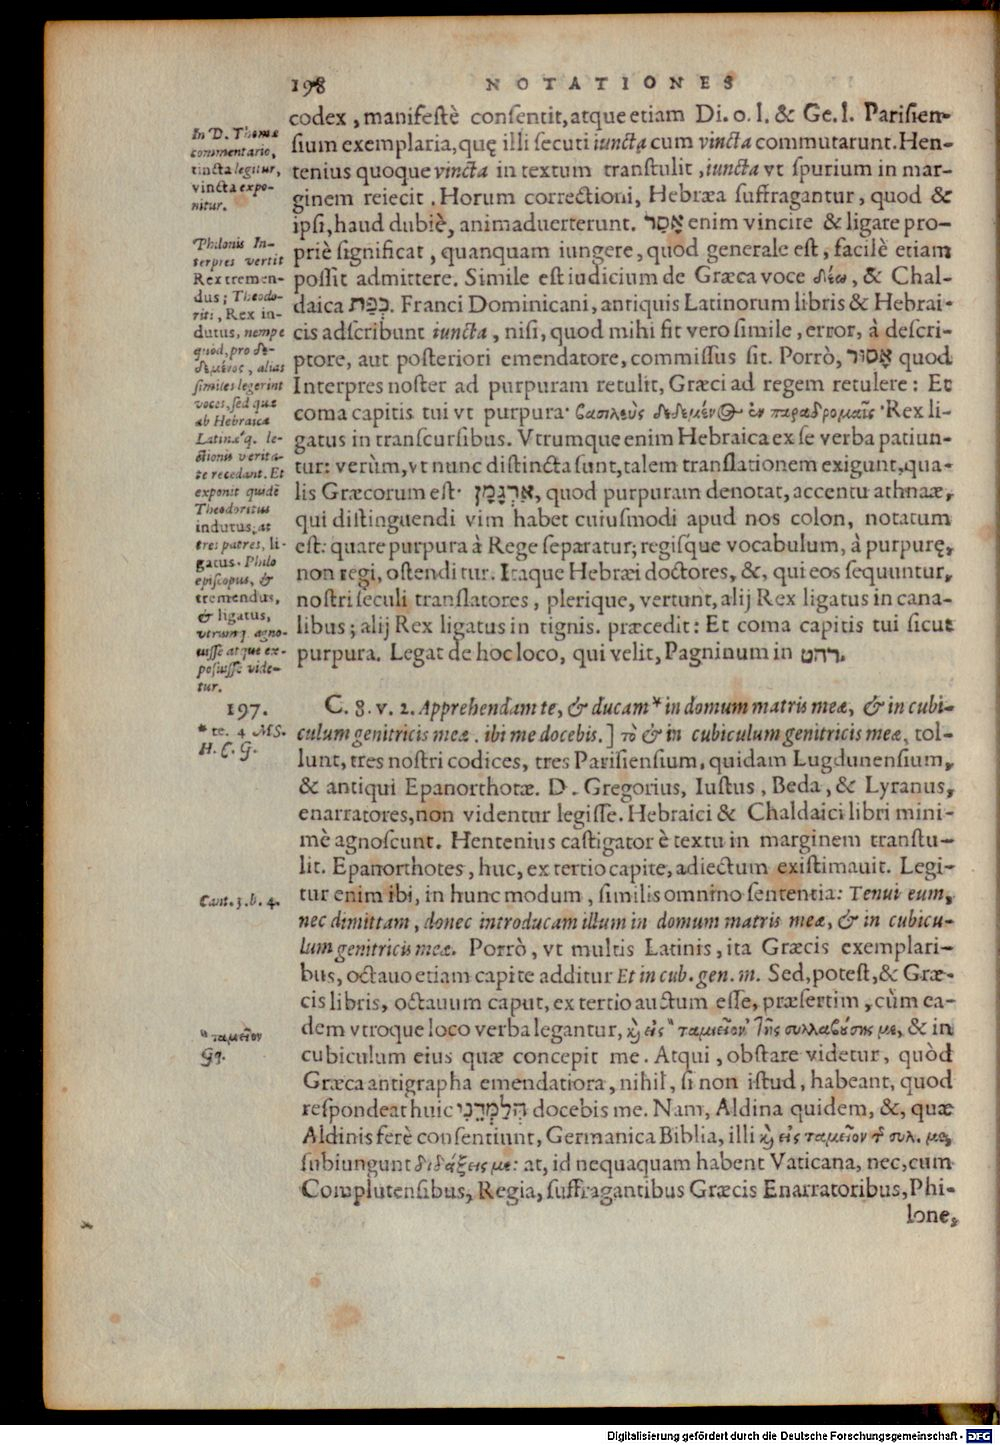 198 NOTATIONES
codex, manifestè consentit, atque etiam Di. o. I. & Ge. I. Parisien-
sium exemplaria, quę illi secuti iunctą cum vincta commutarunt. Hen-
tenius quoque vincta in textum transtulit, iuncta vt spurium in mar-
ginem reiecit. Horum correctioni, Hebræa suffragantur, quod &
ipsi, haud dubiè, animaduerterunt. אָסַר enim vincire & ligare pro-
priè significat, quanquam iungere, quod generale est, facilè etiam
possit admittere. Simile est iudicium de Græca voce δέω, & Chal-
daica כְּפַת. Franci Dominicani, antiquis Latinorum libris & Hebrai-
cis adscribunt iuncta, nisi, quod mihi fit vero simile, error, à descri-
ptore, aut posteriori emendatore, commissus sit. Porrò, אָסוּר quod
Interpres noster ad purpuram retulit, Græci ad regem retulere: Et
coma capitis tui vt purpura· βασιλεὺς δεδεμένος ἐν παραδρομαῖς· Rex li-
gatus in transcursibus. Vtrumque enim Hebraica ex se verba patiun-
tur: verùm, vt nunc distincta sunt, talem translationem exigunt, qua-
lis Græcorum est· אַרְגָּמָן, quod purpuram denotat, accentu athnaæ,
qui distinguendi vim habet cuiusmodi apud nos colon, notatum
est: quare purpura à Rege separatur; regisque vocabulum, à purpurę,
non regi, ostenditur. Itaque Hebræi doctores, &, qui eos sequuntur,
nostri seculi translatores, plerique, vertunt, alij Rex ligatus in cana-
libus; alij Rex ligatus in tignis. præcedit: Et coma capitis tui sicut
purpura. Legat de hoc loco, qui velit, Pagninum in רהט.
In D. Thomæ
commentario,
tincta legitur,
vincta expo-
nitur.
Philonis In-
terpres vertit
Rex tremen-
dus; Theodo-
riti, Rex in-
dutus, nempe
quòd, pro δε-
δεμένος, alias
similes legerint
voces, sed quæ
ab Hebraicæ
Latinæq. le-
ctionis verita-
te recedant. Et
exponit quidē
Theodoritus
indutus; at
tres patres, li-
gatus· Philo
episcopus, &
tremendus,
& ligatus,
vtrumq. agno-
uisse atque ex-
posuisse vide-
tur.
197.
* te. 4 MS.
H. C. G.
C. 8. v. 2. Apprehendam te, & ducam * in domum matris meæ, & in cubi-
culum genitricis meæ. ibi me docebis.] τὸ & in cubiculum genitricis meæ, tol-
lunt, tres nostri codices, tres Parisiensium, quidam Lugdunensium,
& antiqui Epanorthotæ. D. Gregorius, Iustus, Beda, & Lyranus,
enarratores, non videntur legisse. Hebraici & Chaldaici libri mini-
mè agnoscunt. Hentenius castigator è textu in marginem transtu-
lit. Epanorthotes, huc, ex tertio capite, adiectum existimauit. Legi-
tur enim ibi, in hunc modum, similis omnino sententia: Tenui eum,
nec dimittam, donec introducam illum in domum matris meæ, & in cubicu-
lum genitricis meæ. Porrò, vt multis Latinis, ita Græcis exemplari-
bus, octauo etiam capite additur Et in cub. gen. m. Sed, potest, & Græ-
cis libris, octauum caput, ex tertio auctum esse, præsertim, cùm ea-
dem vtroque loco verba legantur, καὶ εἰς " ταμιεῖον τῆς συλλαβούσης με, & in
cubiculum eius quæ concepit me. Atqui, obstare videtur, quòd
Græca antigrapha emendatiora, nihil, si non istud, habeant, quod
respondeat huic תְּלַמְּדֵנִי docebis me. Nam, Aldina quidem, &, quæ
Aldinis ferè consentiunt, Germanica Biblia, illi καὶ εἰς ταμεῖον τ συλ. με,
subiungunt διδάξεις με: at, id nequaquam habent Vaticana, nec, cum
Complutensibus, Regia, suffragantibus Græcis Enarratoribus, Phi-
lone,
Cant. 3. b. 4.
" ταμεῖον
Gq.
Digitalisierung gefördert durch die Deutsche Forschungsgemeinschaft - DFG